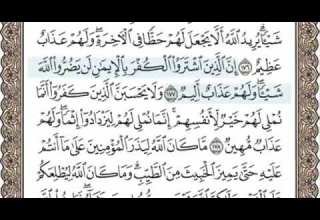 شَيْـًٔا ۗ يُرِيدُ ٱللَّهُ أَلَّا يَجْعَلَ لَهُمْ حَظًّا فِى ٱلْءَاخِرَةِ ۖ وَلَهُمْ عَذَابٌ
عَظِيمٌ ١٧٦ إِنَّ ٱلَّذِينَ ٱشْتَرَوُا۟ ٱلْكُفْرَ بِٱلْإِيمَٰنِ لَن يَضُرُّوا۟ ٱللَّهَ
شَيْـًٔا وَلَهُمْ عَذَابٌ أَلِيمٌ ١٧٧ وَلَا يَحْسَبَنَّ ٱلَّذِينَ كَفَرُوٓا۟ أَنَّمَا
نُمْلِى لَهُمْ خَيْرٌ لِّأَنفُسِهِمْ ۚ إِنَّمَا نُمْلِى لَهُمْ لِيَزْدَادُوٓا۟ إِثْمًا ۚ وَلَهُمْ
عَذَابٌ مُّهِينٌ ١٧٨ مَّا كَانَ ٱللَّهُ لِيَذَرَ ٱلْمُؤْمِنِينَ عَلَىٰ مَآ أَنتُمْ
عَلَيْهِ حَتَّىٰ يَمِيزَ ٱلْخَبِيثَ مِنَ ٱلطَّيِّبِ ۗ وَمَا كَانَ ٱللَّهُ لِيُطْلِعَكُمْ